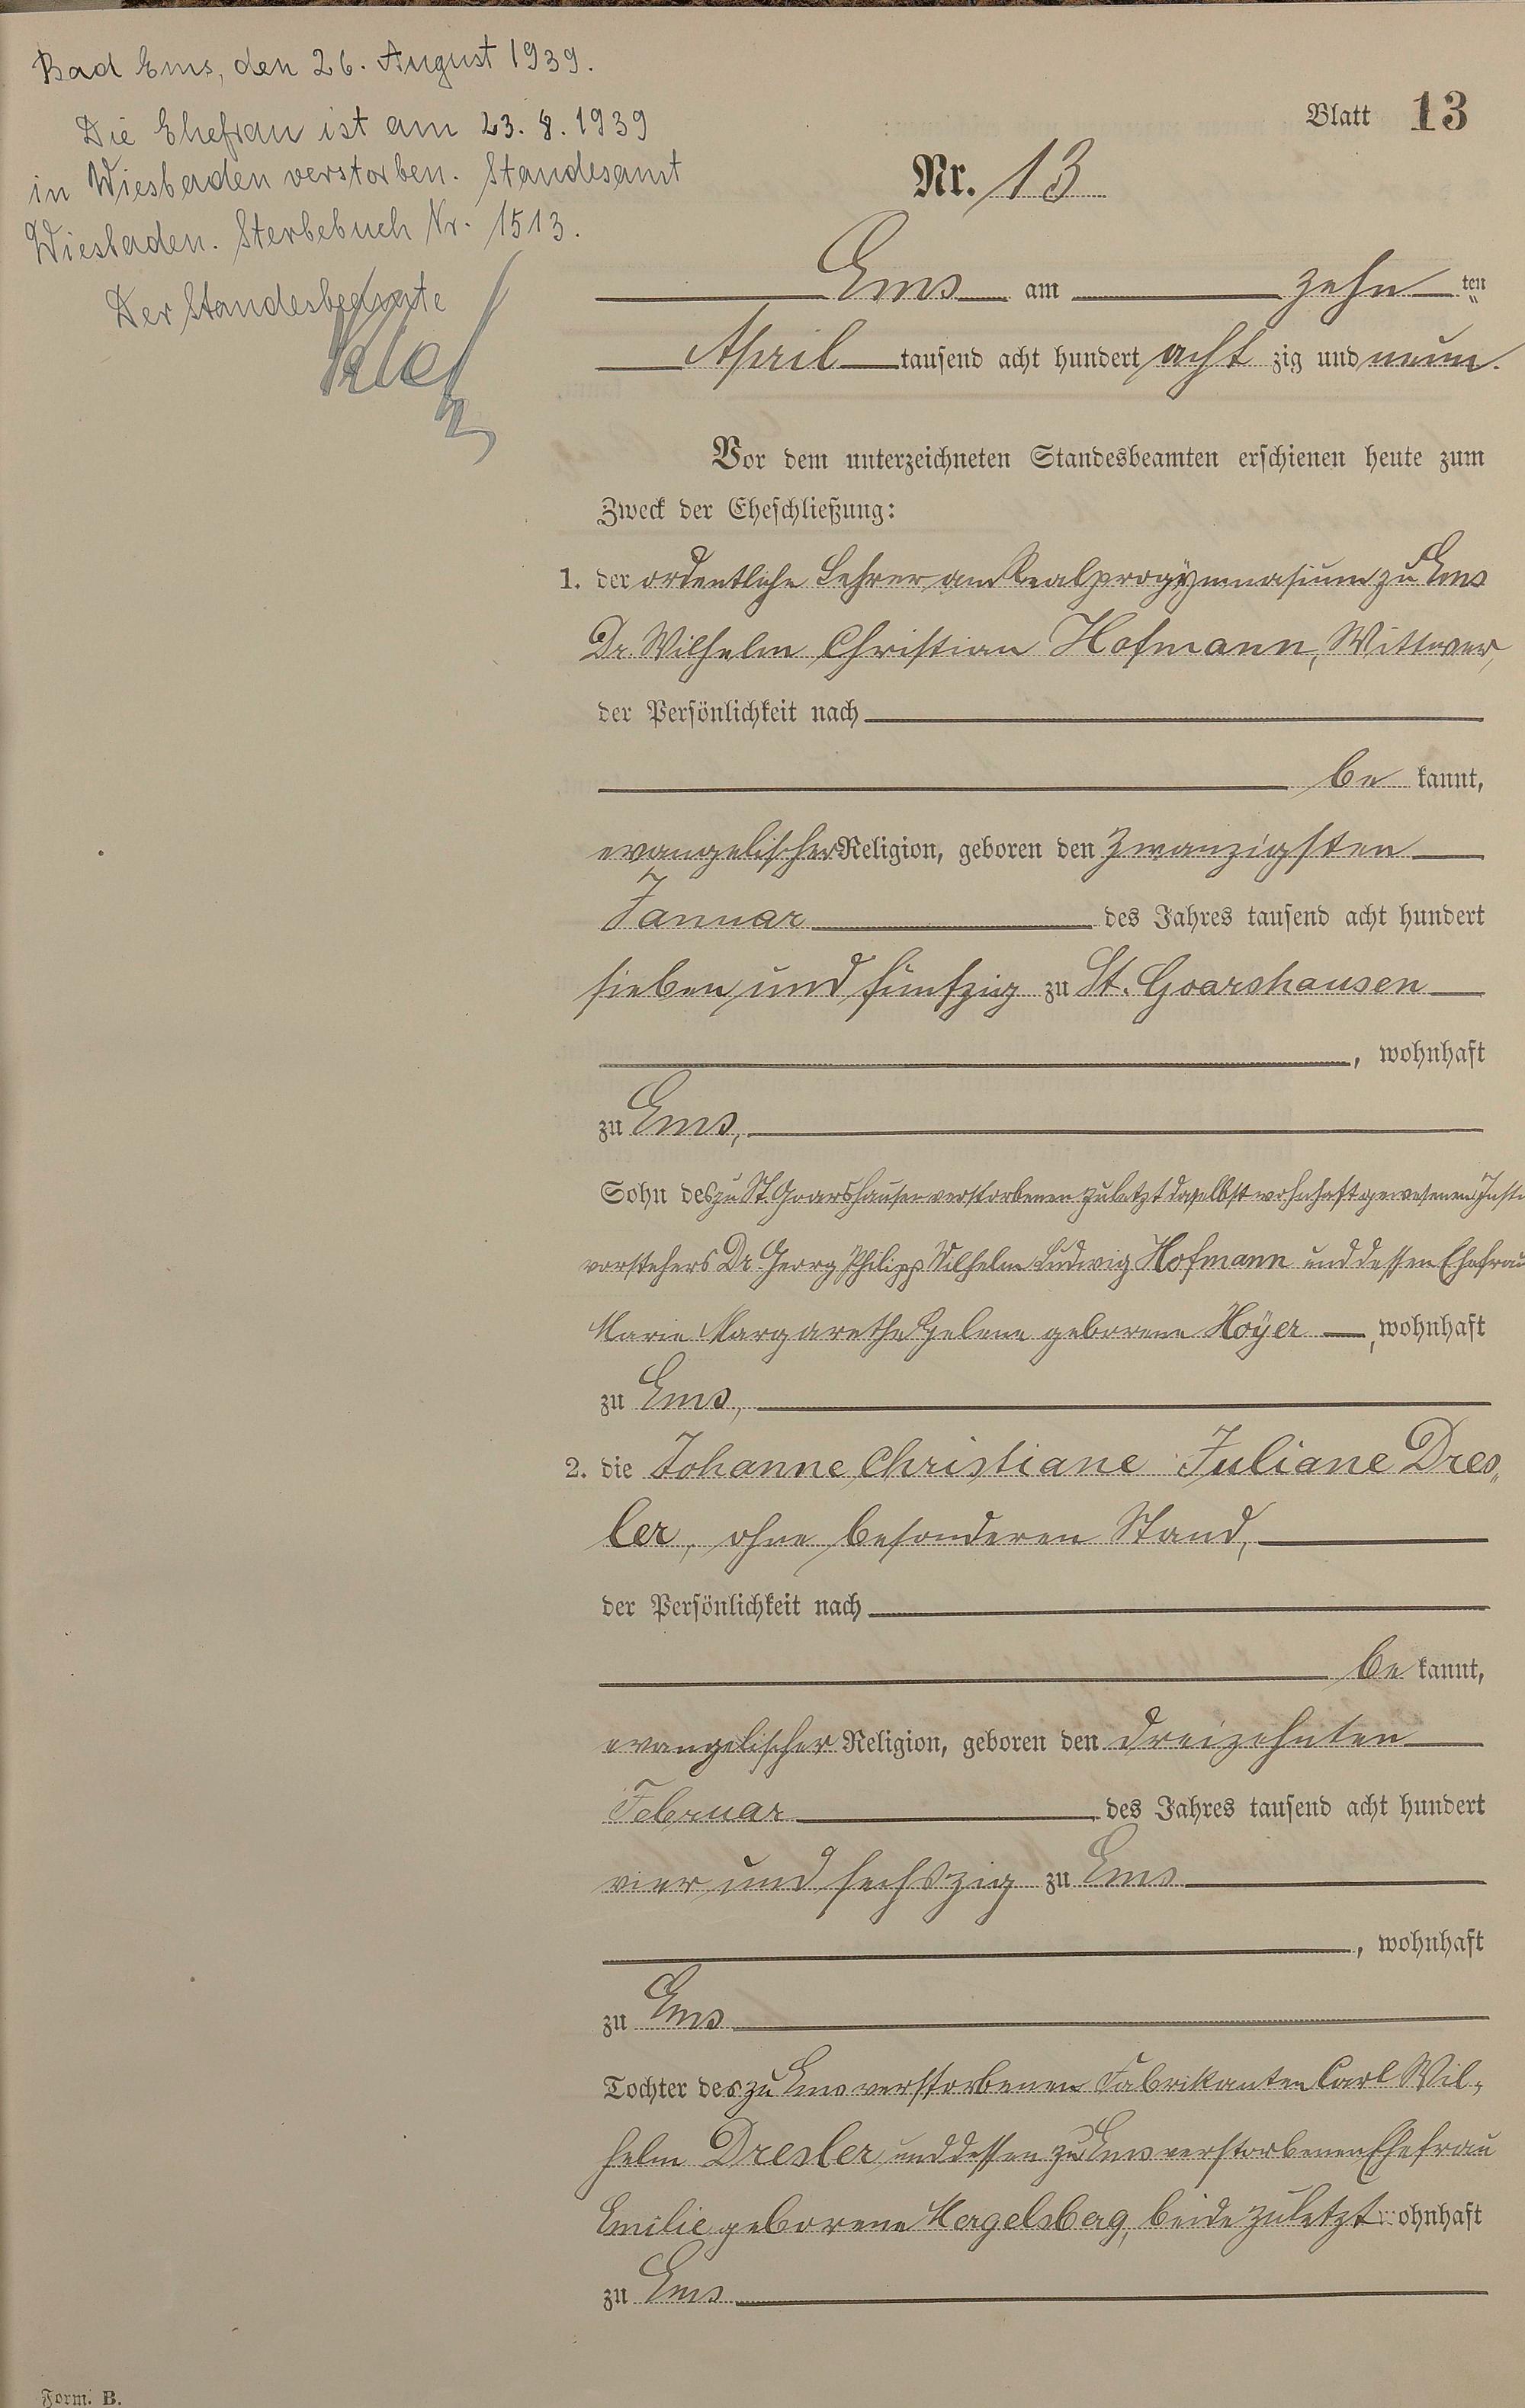 Bad Ems, den 26. August 1939.
Die Ehefrau ist am 23. 8. 1939
in Wiesbaden verstorben. Standesamt
Wiesbaden. Sterbebuch Nr. 1513.
Der Standesbeamte
Blatt 13
Nr. 13
Ems am zehn ten
April tausend acht hundert acht zig und neun.
Vor dem unterzeichneten Standesbeamten erschienen heute zum
Zweck der Eheschließung:
1. der ordentliche Lehrer am Realprogymnasium zu Ems
Dr. Wilhelm Christian Hofmann, Wittwer,
der Persönlichkeit nach
be kannt,
evangelischer Religion, geboren den zwanzigsten
Januar des Jahres tausend acht hundert
sieben und fünfzig zu St. Goarshausen
, wohnhaft
zu Ems,
Sohn des zu St. Goarshausen verstorbenen zuletzt daselbst wohnhaft gewesenen Insti
vorstehers Dr. Georg Philipp Wilhelm Ludwig Hofmann und dessen Ehefrau
Marie Margarethe Helene geborene Hoÿer, wohnhaft
zu Ems,
2. die Johanne Christiane Juliane Dres„
ler, ohne besonderen Stand,
der Persönlichkeit nach
be kannt,
evangelischer Religion, geboren den dreizehnten
Februar des Jahres tausend acht hundert
vier und sechszig zu Ems
, wohnhaft
zu Ems
Tochter des zu Ems verstorbenen Fabrikanten Carl Wil„
helm Dresler und dessen zu Ems verstorbenen Ehefrau
Emilie geborene beide zuletzt wohnhaft
zu Ems
Form. B.